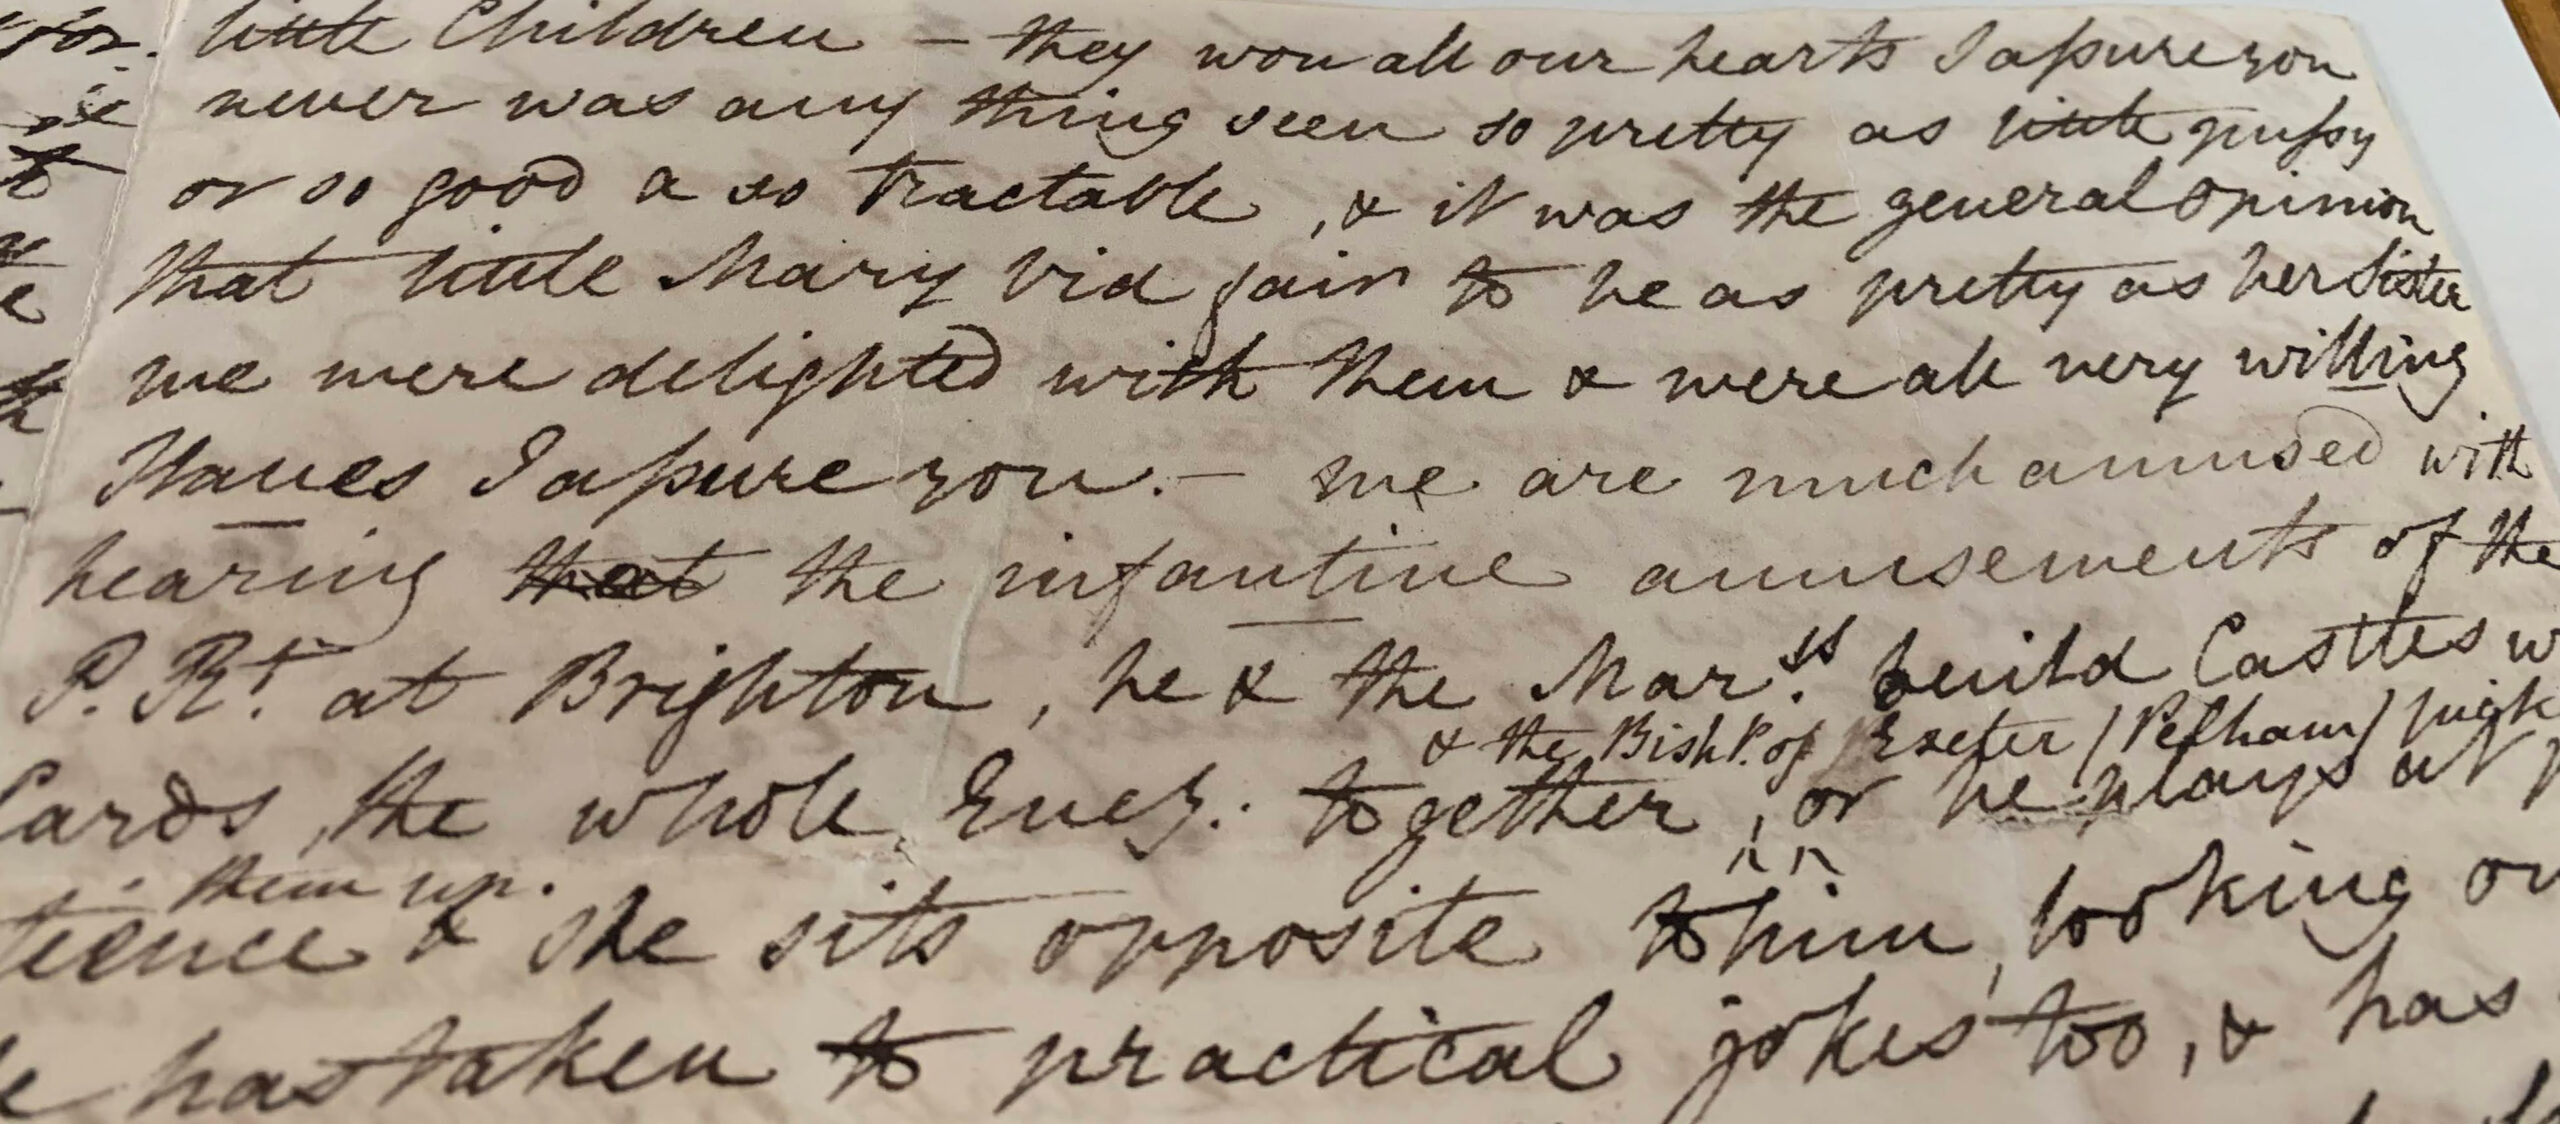 little Children – they won all our hearts I aſsure you
never was any thing seen so pretty as little puſsy
or so good & so tractable, & it was the general opinion
that little Mary bid fair to be as pretty as her Sister
we were delighted with them & were all very willing
Slaves I aſsure you. – we are much amused with
hearing that the infantine amusements of the
P. Rt. at Brighton, he & the Marss. build Castles w
& the BishP. of Exeter / Pelham /
Cards, the whole Eveg. together, or he plays at p
them up.
tience & she sits opposite to him, looking on
e has taken to practical jokes too, & has